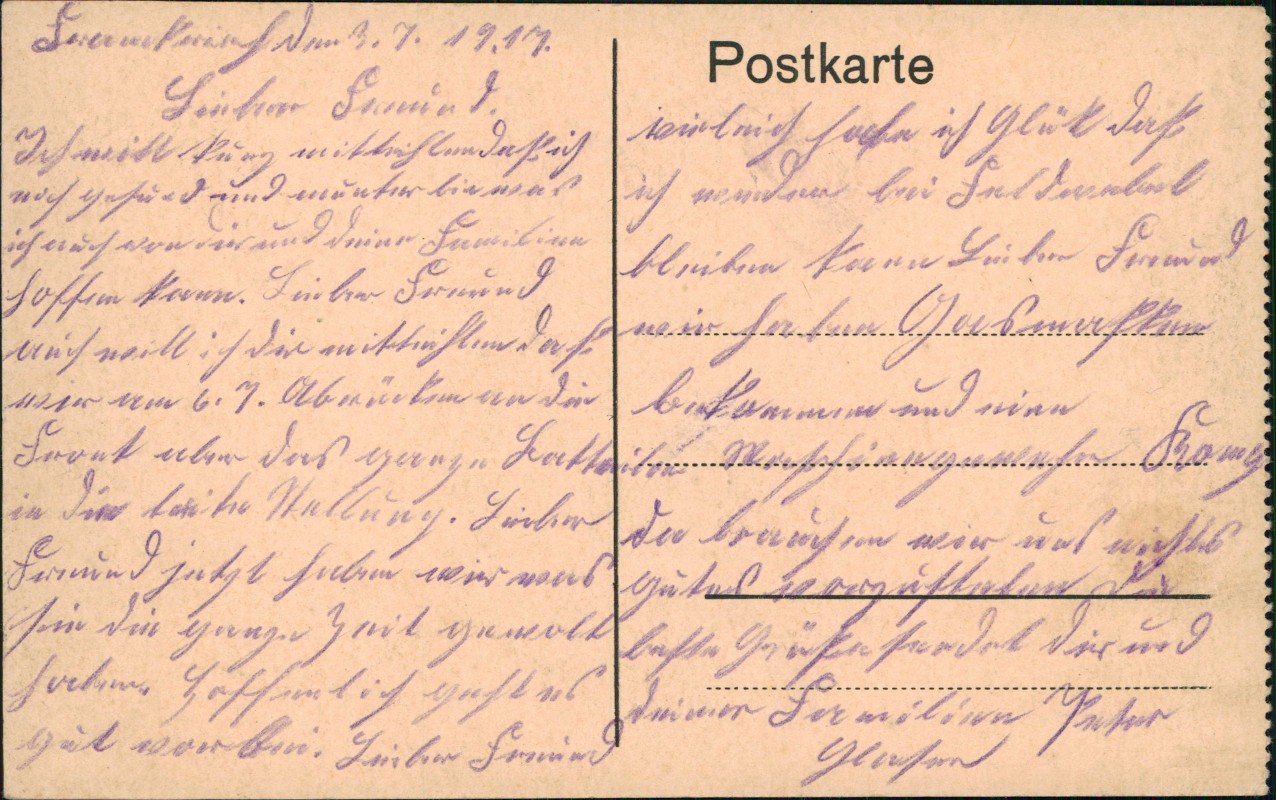 Franckreich den 3. 7. 1917.
Lieber Freund.
Ich will kurz mitteihlen daß ich
noch gesund und munter bin was
ich auch von dir und deiner Familien
hoffen kann. Lieber Freund
auch will ich dir mitteihlen daß
wir am 6. 7. Abrücken an die
Front aber das ganze Batteilon
in die Stellung. Lieber
Freund jetzt haben wir was
sie die ganze Zeit gewolt
haben. Hoffenlich geht es
gut vorbei. Lieber Freund
Postkarte
vieleich habe ich Glük daß
ich wieder bei Feldwebel
bleiben kann Lieber Freund
wir haben Gasmasken
bekommen und eine
Maschinengewehr Komp
da brauchen wir uns nichts
gutes vorzustelen die
beste Grüße sendet dir und
deiner Familien Peter
Glaser